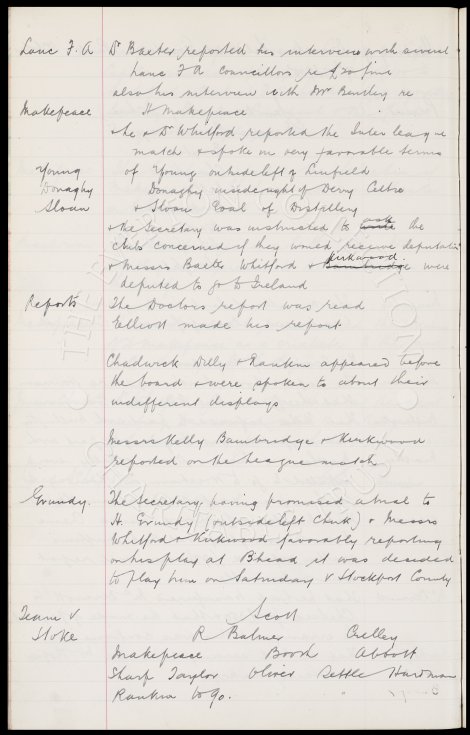 Lanc F. A Dr Baxter reported his interview with several
Lanc F A Councillors re £20 fine
also his interview with Mr Bentley re
Makepeace H Makepeace
+ he + Dr Whitford reported the Inter league
match + spoke in very favorable terms
Young of Young outside left of Linfield
Donaghy Donaghy inside right of Derry Celtic
Sloan + Sloan Goal of Distillery
+ the Secretary was instructed to ask the
clubs concerned if they would receive deputation
+ Messrs Baxter Whitford + Kirkwood Bainbridge were
deputed to go to Ireland
Reports The Doctors report was read
Elliott made his report
Chadwick Dilly + Rankin appeared before
the board + were spoken to about their
indifferent displays
Messrs Kelly Bainbridge + Kirkwood
reported on the League match
Grundy. The Secretary having promised a trial to
H. Grundy (outside left Chirk) + Messrs
Whitford + Kirkwood favorably reporting
on his play at Bhead it was decided
to play him on Saturday v Stockport County
Team v Scott
Stoke R Balmer Crelley
Makepeace Booth Abbott
Sharp Taylor Oliver Settle Hardman
Rankin to go.